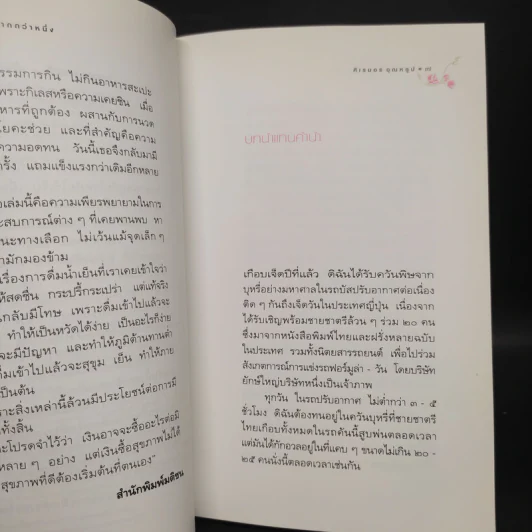 ากกว่าหนึ่ง
รรมการกิน ไม่กินอาหารสะเปะ
พราะกิเลสหรือความเคยชิน เมื่อ
หารที่ถูกต้อง ผสานกับการนวด
โยคะช่วย และที่สำคัญคือความ
ความอดทน วันนี้เธอจึงกลับมามี
ครั้ง แถมแข็งแรงกว่าเดิมอีกหลาย
อเล่มนี้คือความเพียรพยายามในการ
ะสบการณ์ต่าง ๆ ที่เคยพานพบ หา
นะทางเลือก ไม่เว้นแม้จุดเล็ก ๆ
ามักมองข้าม
เรื่องการดื่มน้ำเย็นที่เราเคยเข้าใจว่า
ห้สดชื่น กระปรี้กระเปร่า แต่แท้จริง
นกลับมีโทษ เพราะดื่มเข้าไปแล้วจะ
ทำให้เป็นหวัดได้ง่าย เป็นอะไรก็ง่าย
จะมีปัญหา และทำให้ภูมิต้านทานต่ำ
ดื่มเข้าไปแล้วจะสุขุม เย็น ทำให้กาย
เป็นต้น
ราะสิ่งเหล่านี้ล้วนมีประโยชน์ต่อการมี
ทั้งสิ้น
ะโปรดจำไว้ว่า เงินอาจจะซื้ออะไรต่อมิ
หลาย ๆ อย่าง แต่เงินซื้อสุขภาพไม่ได้
สุขภาพที่ดีต้องเริ่มต้นที่ตนเอง"
สำนักพิมพ์มติชน
บทนำแทนคำนำ
เกือบเจ็ดปีที่แล้ว ดิฉันได้รับควันพิษจาก
บุหรี่อย่างมหาศาลในรถบัสปรับอากาศต่อเนื่อง
ติด ๆ กันถึงเจ็ดวันในประเทศญี่ปุ่น เนื่องจาก
ได้รับเชิญพร้อมชายชาตรีล้วน ๆ ร่วม ๒๐ คน
ซึ่งมาจากหนังสือพิมพ์ไทยและฝรั่งหลายฉบับ
ในประเทศ รวมทั้งนิตยสารรถยนต์ เพื่อไปร่วม
สังเกตการณ์การแข่งรถฟอร์มูล่า - วัน โดยบริษัท
ยักษ์ใหญ่บริษัทหนึ่งเป็นเจ้าภาพ
ทุกวัน ในรถปรับอากาศ ไม่ต่ำกว่า ๓ - ๕
ชั่วโมง ดิฉันต้องทนอยู่ในควันบุหรี่ที่ชายชาตรี
ไทยเกือบทั้งหมดในรถคันนี้สูบพ่นตลอดเวลา
แต่มันได้กักอวลอยู่ในที่แคบ ๆ ขนาดไม่เกิน ๒๐ -
๒๕ คนนั่งนี้ตลอดเวลาเช่นกัน